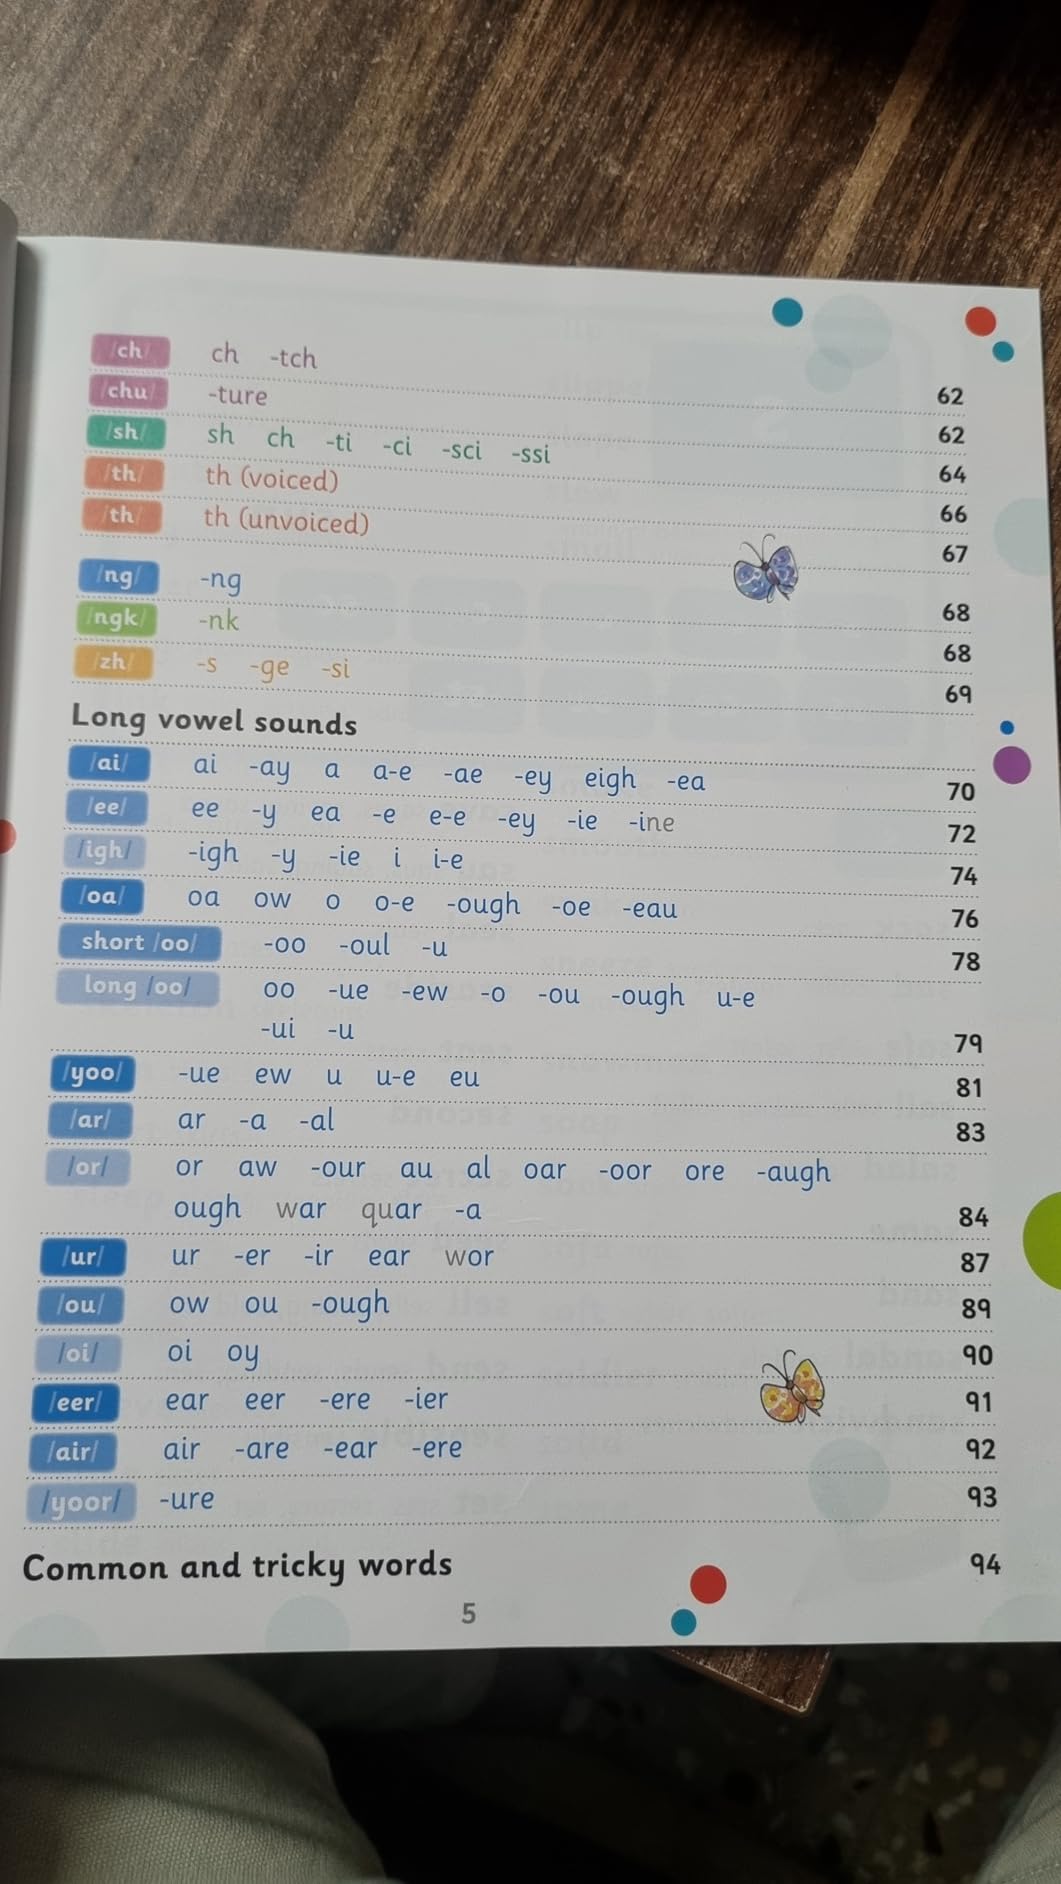 /ch/ ch -tch 62
/chu/ -ture 62
/sh/ sh ch -ti -ci -sci -ssi 64
/th/ th (voiced) 66
/th/ th (unvoiced) 67
/ng/ -ng 68
/ngk/ -nk 68
/zh/ -s -ge -si 69
Long vowel sounds
/ai/ ai -ay a a-e -ae -ey eigh -ea 70
/ee/ ee -y ea -e e-e -ey -ie -ine 72
/igh/ -igh -y -ie i i-e 74
/oa/ oa ow o o-e -ough -oe -eau 76
short /oo/ -oo -oul -u 78
long /oo/ oo -ue -ew -o -ou -ough u-e
-ui -u 79
/yoo/ -ue ew u u-e eu 81
/ar/ ar -a -al 83
/or/ or aw -our au al oar -oor ore -augh
ough war quar -a 84
/ur/ ur -er -ir ear wor 87
/ou/ ow ou -ough 89
/oi/ oi oy 90
/eer/ ear eer -ere -ier 91
/air/ air -are -ear -ere 92
/yoor/ -ure 93
Common and tricky words 94
5